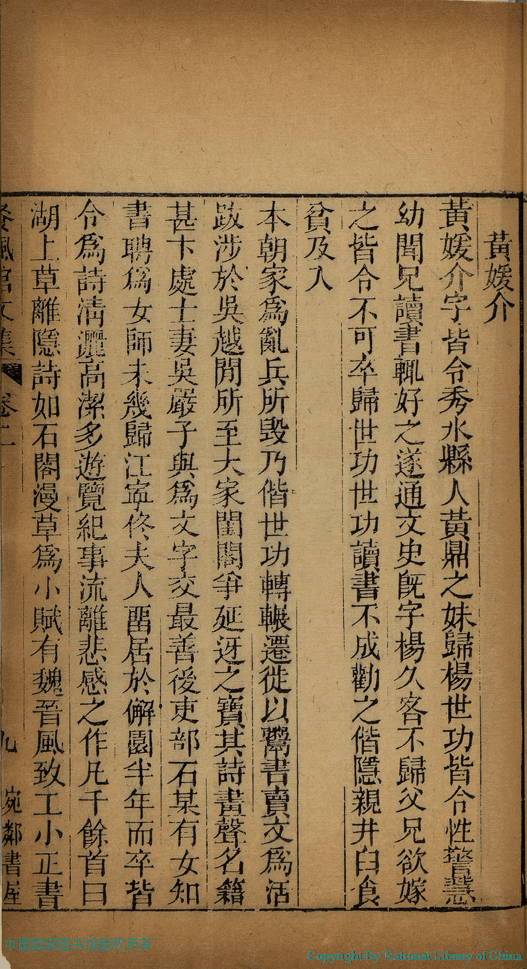 黃媛介
黃媛介字皆令秀水縣人黃鼎之妹歸楊世功皆令性警慧
幼聞兄讀書輒好之遂通文史旣字楊久客不歸父兄欲嫁
之皆令不可卒歸世功世功讀書不成勸之偕隱親井臼食
貧及入
本朝家爲亂兵所毁乃偕世功轉輾遷徙以鬻書賣文爲活
跋涉於吳越閒所至大家閨閣爭延迓之寶其詩畫聲名籍
甚卞處士妻吳巖子與爲文字交最善後吏部石某有女知
書聘爲女師未幾歸江寧佟夫人畱居於僻園半年而卒皆
令爲詩淸灑高潔多遊覽紀事流離悲感之作凡千餘首曰
湖上草離隱詩如石閣漫草爲小賦有魏晉風致工小正書
養風官文集
卷十二
九
宛鄰書屋
Copyright by National Library of China